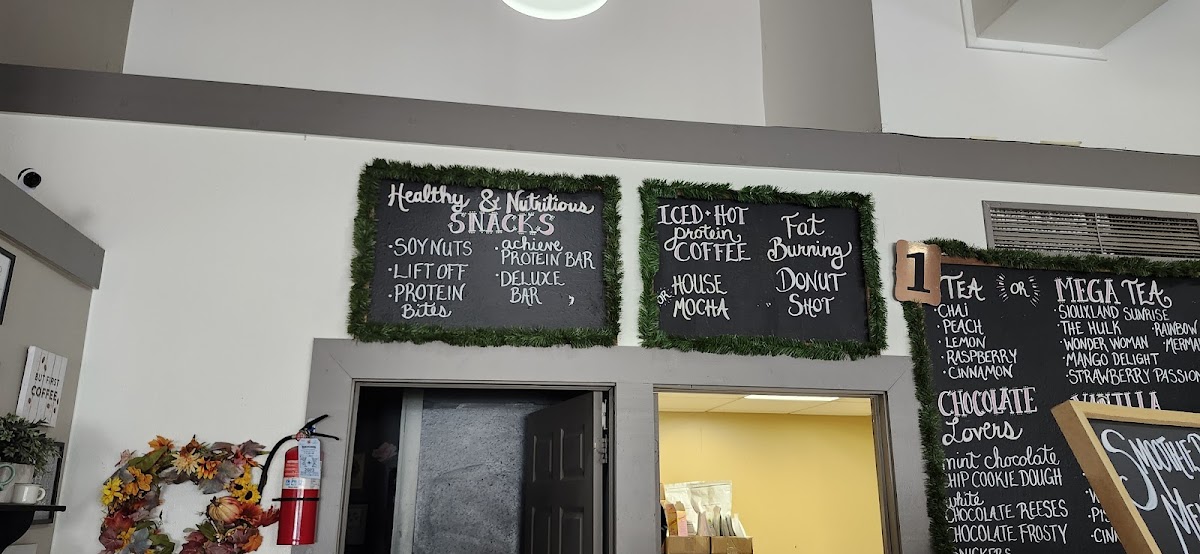 Healthy & Nutritious
SNACKS
·SOY NUTS
·LIFT OFF
·PROTEIN
Bites
·achieve
PROTEIN BAR
·DELUXE
BAR
ICED · HOT
protein
COFFEE
or HOUSE
MOCHA
Fat
Burning
DONUT
SHOT
1
TEA or MEGA TEA
·CHAI
·PEACH
·LEMON
·RASPBERRY
·CINNAMON
·SIOUXLAND SUNRISE
·THE HULK
·RAINBOW
·WONDER WOMAN
·MANGO DELIGHT
·STRAWBERRY PASSION
CHOCOLATE
Lovers
mint chocolate
CHIP COOKIE DOUGH
white
CHOCOLATE REESES
CHOCOLATE FROSTY
SNICKERS
VANILLA
BUT FIRST
COFFEE